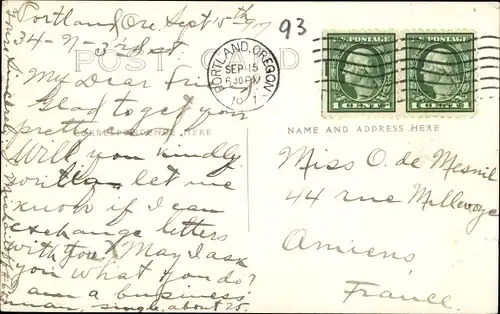 Portland, Ore Sept 15th
34-N-3rd st.
93
POST CARD
PORTLAND, OREGON
SEP 15
6 30 PM
U.S. POSTAGE
1 CENT 1
U.S. POSTAGE
1 CENT 1
My Dear Friend
Glad to get your
pretty
CORRESPONDENCE HERE
NAME AND ADDRESS HERE
Will you kindly
write let me
know if I can
exchange letters
with you? May I ask
you what you do?
I am a business
man, single, about 25.
Miss O. de Mesnil
44 rue Millevoye
Amiens,
France.
Yours Sincerely